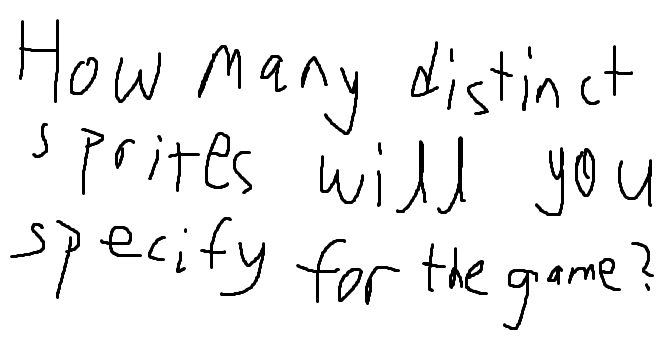 How many distinct
sprites will you
specify for the game?